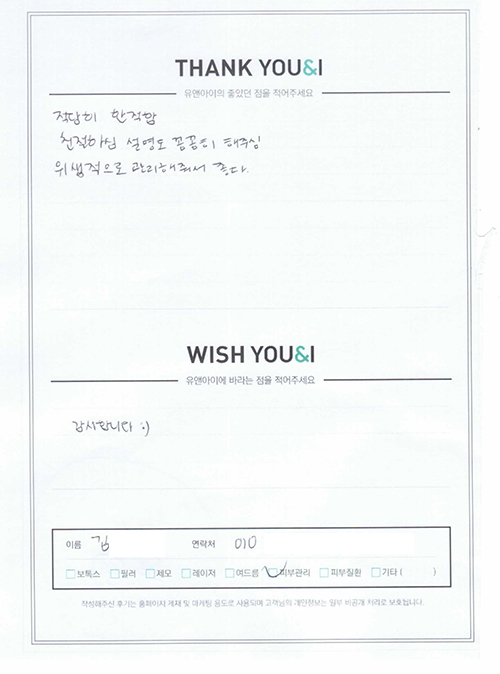 THANK YOU&I
유앤아이의 좋았던 점을 적어주세요
적당히 한적함
친절하심 설명도 꼼꼼히 해주심
위생적으로 관리해줘서 좋다.
WISH YOU&I
유앤아이에 바라는 점을 적어주세요
감사합니다 :)
이름 김 연락처 010
보톡스 필러 제모 레이저 여드름 피부관리 피부질환 기타 ( )
작성해주신 후기는 홈페이지 게재 및 마케팅 용도로 사용되며 고객님의 개인정보는 일부 비공개 처리로 보호됩니다.